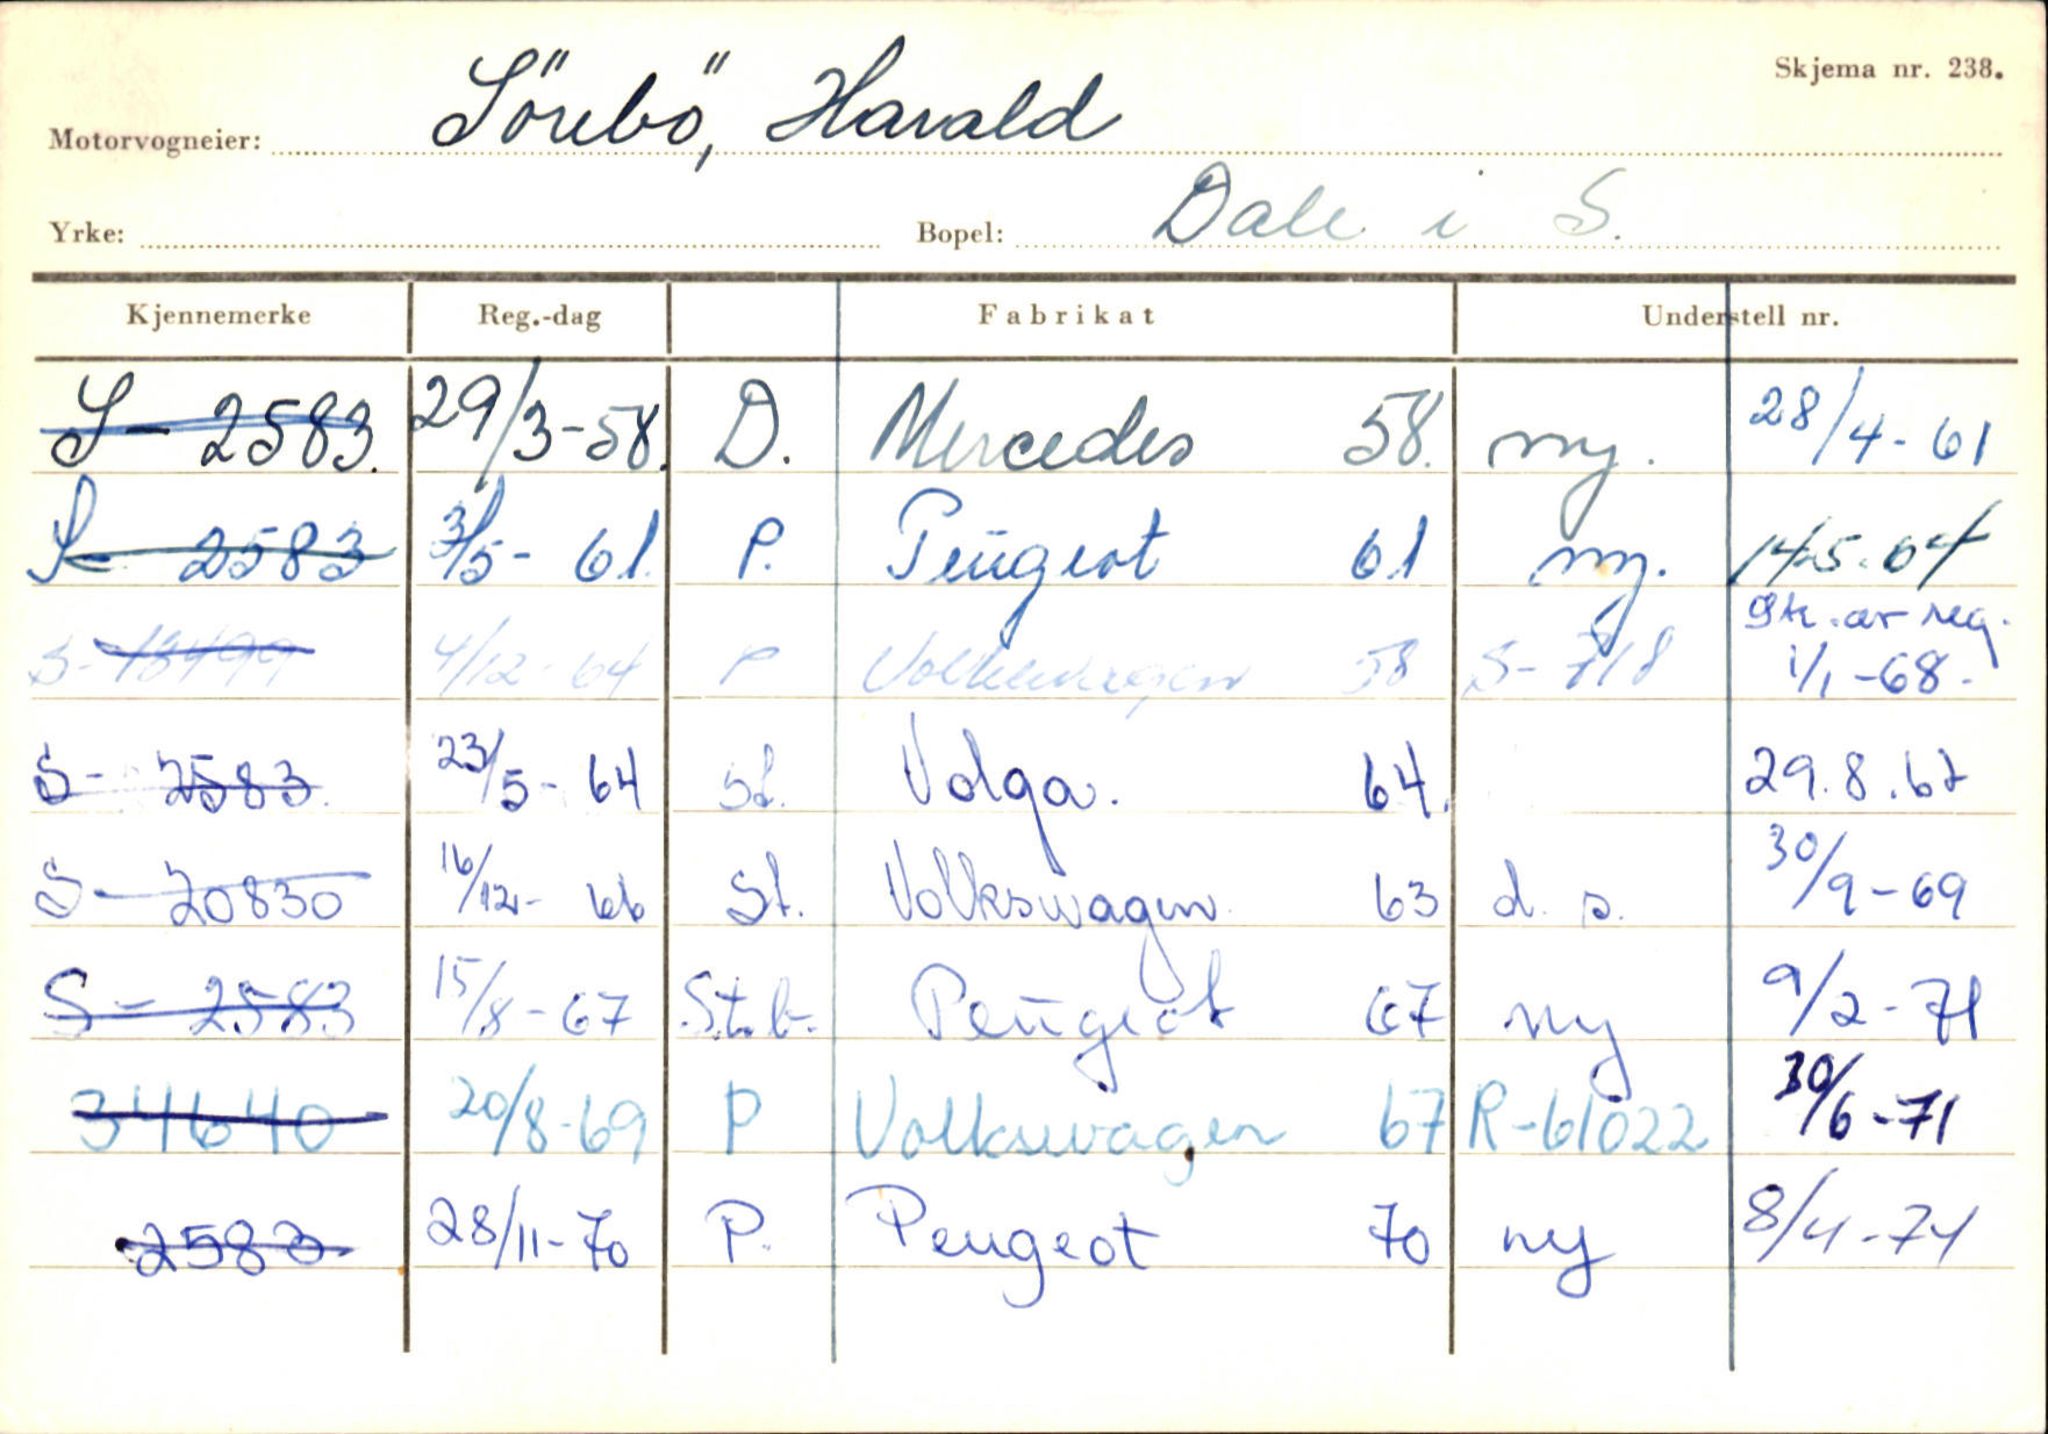 Skjema nr. 238.
Motorvogneier: Sörebö, Harald
Yrke: Bopel: Dale i S.
Kjennemerke Reg.-dag Fabrikat Understell nr.
S - 2583. 29/3-58. D. Mercedes 58. ny. 28/4-61
S - 2583 3/5-61. P. Peugeot 61 ny. 14.5.64
S-18499 4/12-64 P Volkswagen 58 S-718 Stk. av reg. 1/1-68.
S- 2583. 23/5-64 St. Volga. 64. 29.8.67
S- 20830 16/12-66 St. Volkswagen 63 d. s. 30/9-69
S- 2583 15/8-67 St.b. Peugeot 67 ny 9/2-71
34640 20/8-69 P Volkswagen 67 R-61022 30/6-71
2583 28/11-70 P. Peugeot 70 ny 8/4-74